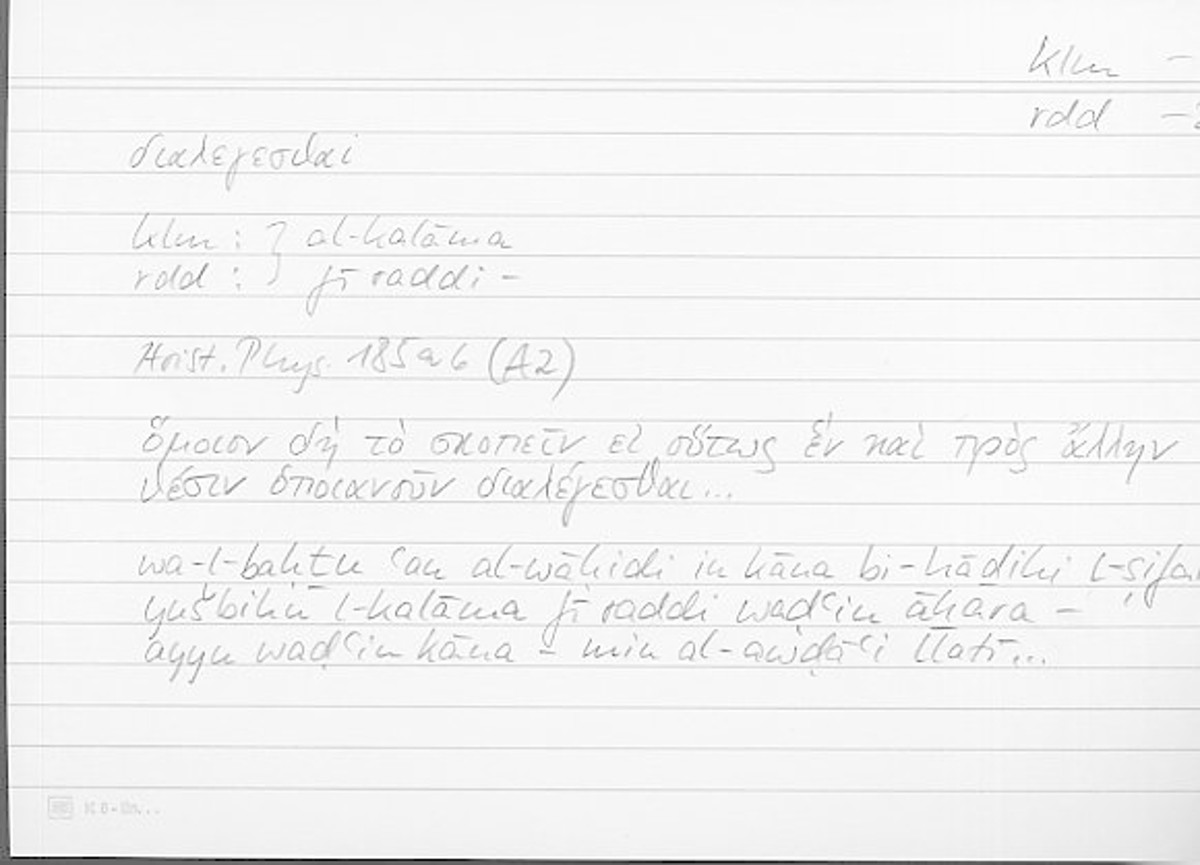 klm –
rdd –
διαλεγεσθαι
klm : } al-kalāma
rdd : } fī raddi –
Arist. Phys. 185a6 (A2)
ὅμοιον δὴ τὸ σκοπεῖν εἰ οὕτως ἓν καὶ πρὸς ἄλλην
θέσιν ὁποιανοῦν διαλέγεσθαι...
wa-l-baḥṯu ʿan al-wāḥidi in kāna bi-hāḏihi l-ṣifa
yušbihu l-kalāma fī raddi waḍʿin āḫara –
ayyu waḍʿin kāna – min al-awḍāʿi llatī...